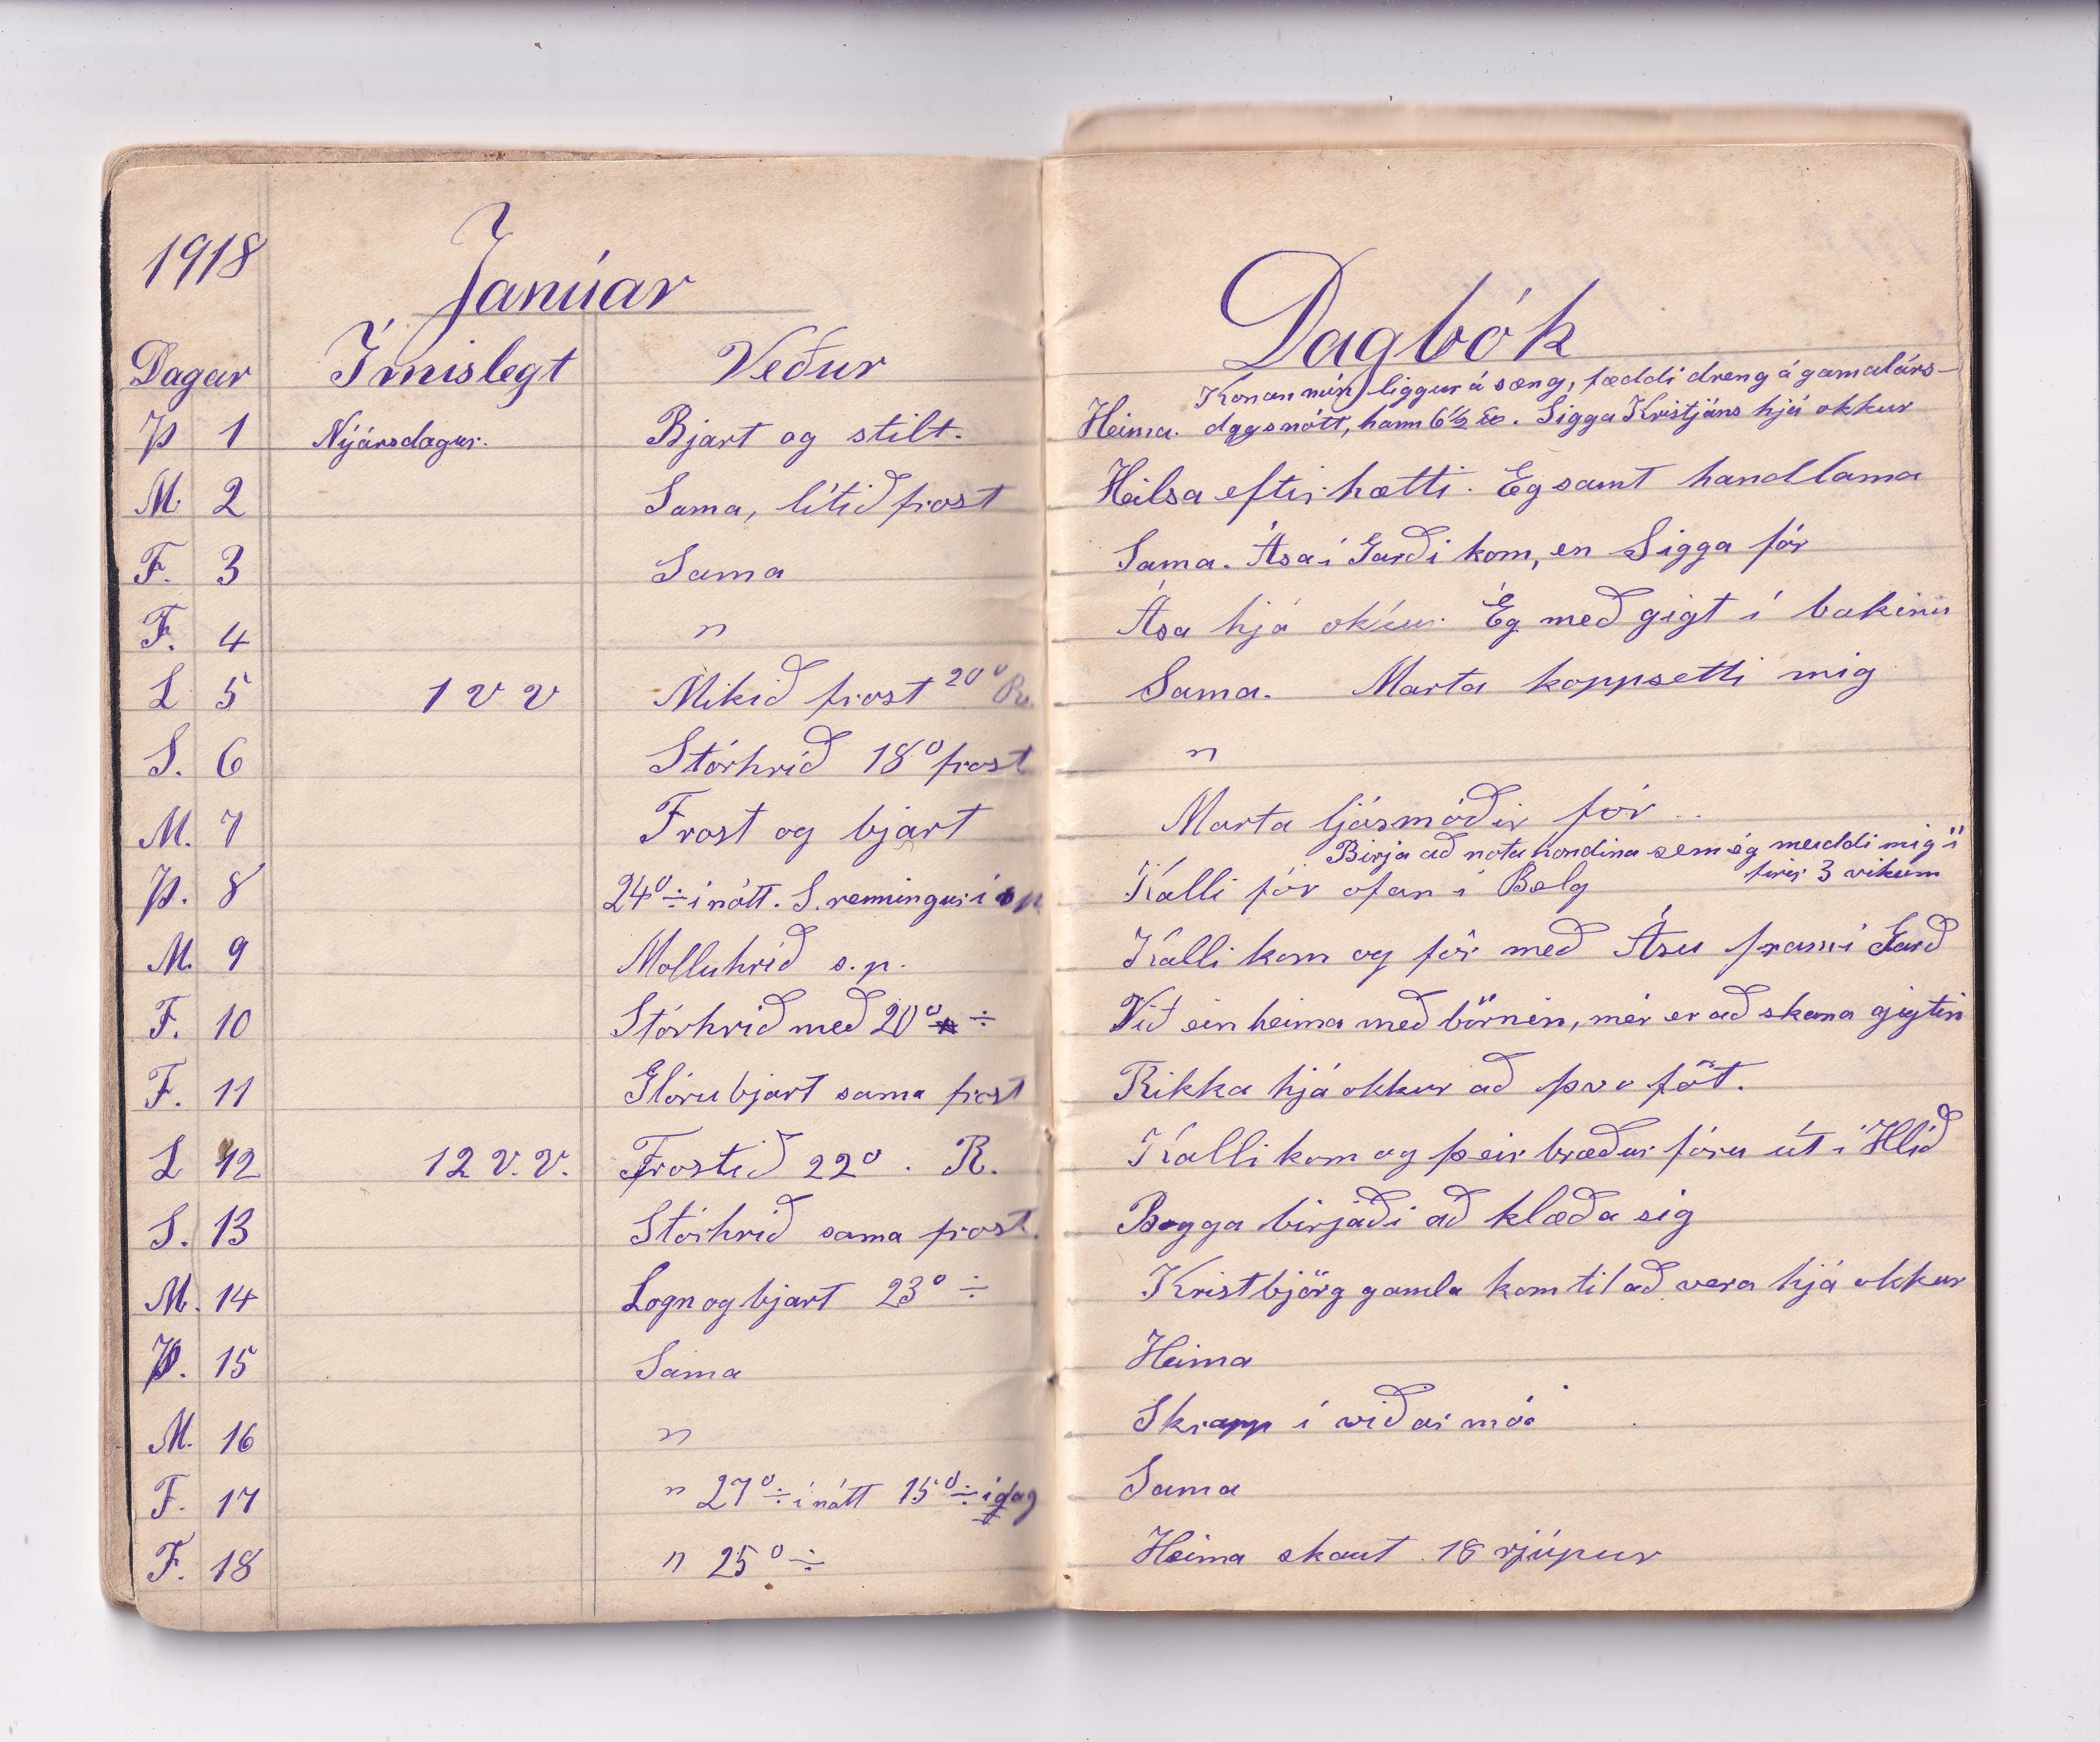 1918
Janúar
Dagar Ímislegt Veður
Þ 1 Nýársdagur. Bjart og stilt.
M. 2 Sama, lítið frost
F. 3 Sama
F. 4 "
L 5 1 v v Mikið frost 20° R.
S. 6 Stórhrið 18° frost
M. 7 Frost og bjart
Þ. 8 24° ÷ í nótt. S. renningur í
M. 9 Molluhrið s.p.
F. 10 Stórhrið með 20° ÷
F. 11 Glóru bjart sama frost
L 12 12 v.v. Frostið 22°. R.
S. 13 Stórhrið sama frost.
M. 14 Logn og bjart 23° ÷
Þ. 15 Sama
M. 16 "
F. 17 " 27° ÷ í nótt 15° ÷ í dag
F. 18 " 25° ÷
Dagbók
Konan mín liggur á sæng, fæddi dreng á gamalárs-
Heima. dagsnótt, hann 6 1/2 ℔. Sigga Kristjáns hjá okkur
Heilsa eftir hætti. Eg samt handlama
Sama. Ása í Garði kom, en Sigga fór
Ása hjá okkur. Ég með gigt í bakinu
Sama. Marta koppsetti mig
"
Marta ljósmóðir fór
Birja að nota höndina sem ég meiddi mig í
firir 3 vikum
Kalli fór ofan í Belg
Kalli kom og fór með Ásu fram í Garð
Við ein heima með börnin, mér er að skána gigtin
Rikka hjá okkur að þvo föt.
Kalli kom og þeir bræður fóru út í Hlíð
Bogga birjaði að klæða sig
Kristbjörg gamla kom til að vera hjá okkur
Heima
Skrapp í viðar mó
Sama
Heima skaut 18 rjúpur